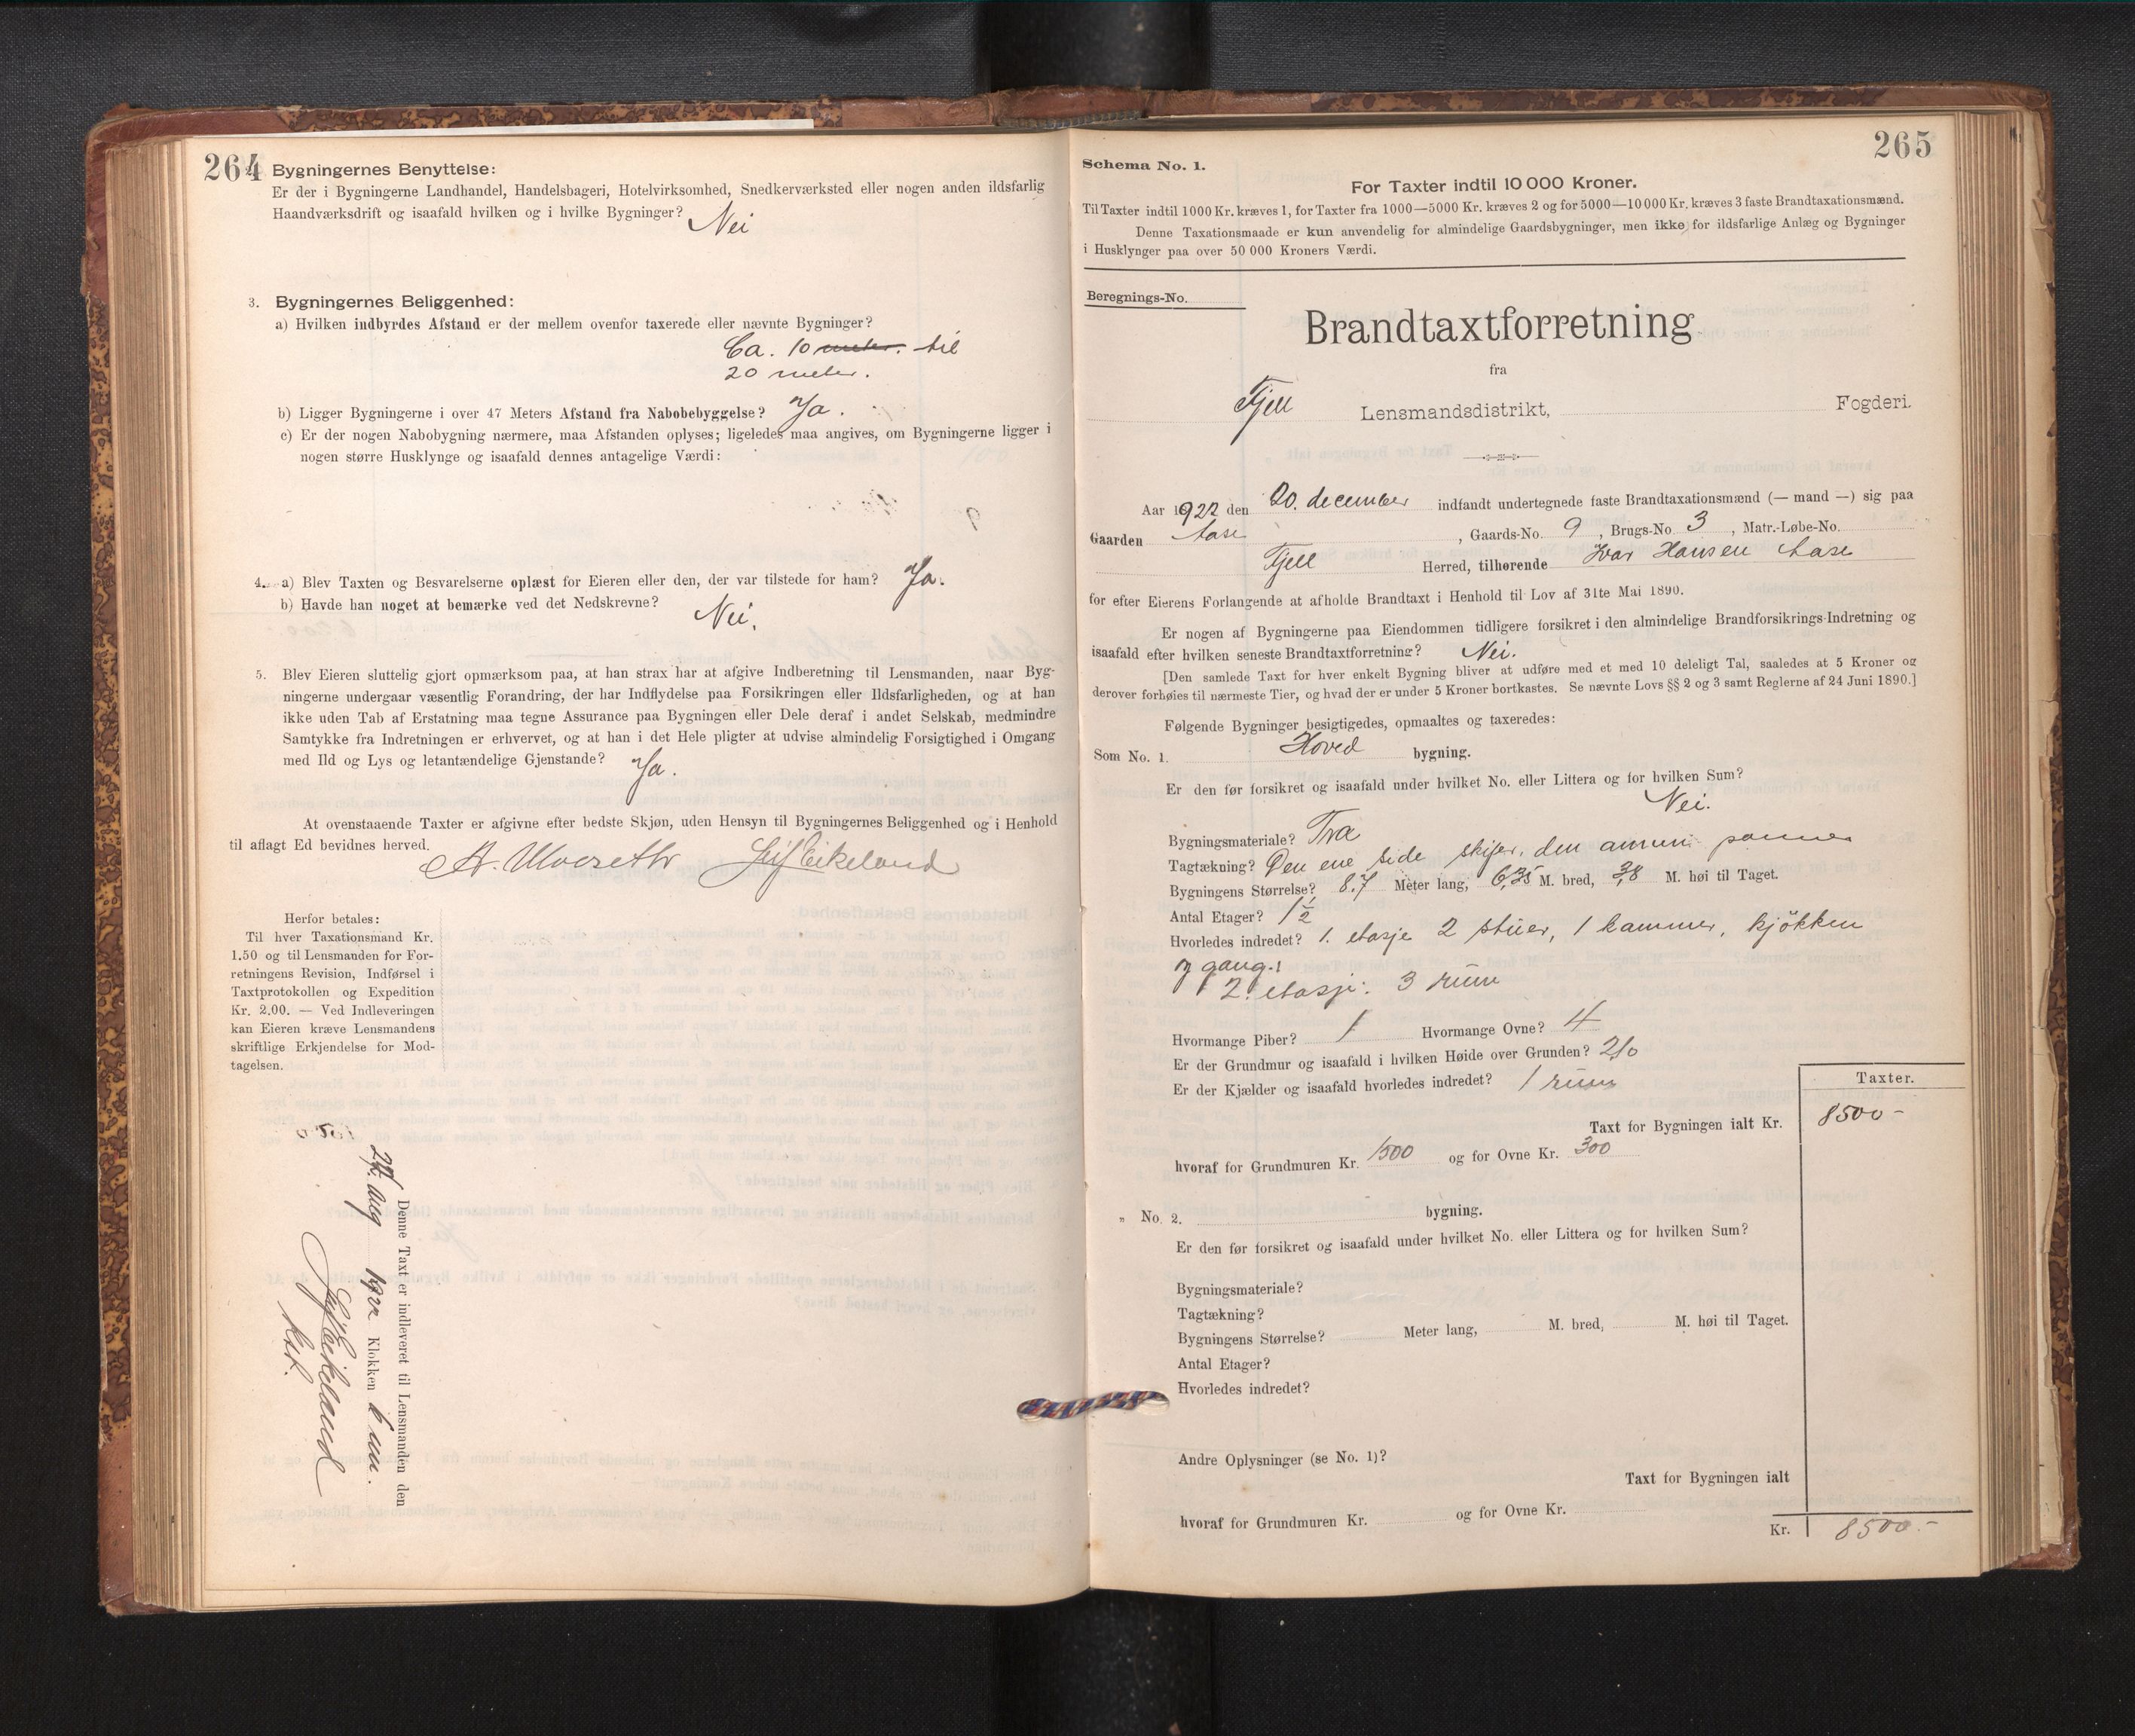 264
Bygningernes Benyttelse:
Er der i Bygningerne Landhandel, Handelsbageri, Hotelvirksomhed, Snedkerværksted eller nogen anden ildsfarlig
Haandværksdrift og isaafald hvilken og i hvilke Bygninger? Nei
3. Bygningernes Beliggenhed:
a) Hvilken indbyrdes Afstand er der mellem ovenfor taxerede eller nævnte Bygninger?
Ca. 10 meter. til
20 meter.
b) Ligger Bygningerne i over 47 Meters Afstand fra Nabobebyggelse? Ja.
c) Er der nogen Nabobygning nærmere, maa Afstanden oplyses; ligeledes maa angives, om Bygningerne ligger i
nogen større Husklynge og isaafald dennes antagelige Værdi:
4. a) Blev Taxten og Besvarelserne oplæst for Eieren eller den, der var tilstede for ham? Ja.
b) Havde han noget at bemærke ved det Nedskrevne? Nei.
5. Blev Eieren sluttelig gjort opmærksom paa, at han strax har at afgive Indberetning til Lensmanden, naar Byg-
ningerne undergaar væsentlig Forandring, der har Indflydelse paa Forsikringen eller Ildsfarligheden, og at han
ikke uden Tab af Erstatning maa tegne Assurance paa Bygningen eller Dele deraf i andet Selskab, medmindre
Samtykke fra Indretningen er erhvervet, og at han i det Hele pligter at udvise almindelig Forsigtighed i Omgang
med Ild og Lys og letantændelige Gjenstande? Ja.
At ovenstaaende Taxter er afgivne efter bedste Skjøn, uden Hensyn til Bygningernes Beliggenhed og i Henhold
til aflagt Ed bevidnes herved.
Leif Eikeland
Herfor betales:
Til hver Taxationsmand Kr.
1.50 og til Lensmanden for For-
retningens Revision, Indførsel i
Taxtprotokollen og Expedition
Kr. 2.00. — Ved Indleveringen
kan Eieren kræve Lensmandens
skriftlige Erkjendelse for Mod-
tagelsen.
Denne Taxt er indleveret til Lensmanden den
Klokken
Leif Eikeland
265
Schema No. 1.
For Taxter indtil 10 000 Kroner.
Til Taxter indtil 1000 Kr. kræves 1, for Taxter fra 1000—5000 Kr. kræves 2 og for 5000—10 000 Kr. kræves 3 faste Brandtaxationsmænd.
Denne Taxationsmaade er kun anvendelig for almindelige Gaardsbygninger, men ikke for ildsfarlige Anlæg og Bygninger
i Husklynger paa over 50 000 Kroners Værdi.
Beregnings-No.
Brandtaxtforretning
fra
Fjell Lensmandsdistrikt, Fogderi.
Aar 1922 den 20. december indfandt undertegnede faste Brandtaxationsmænd (— mand —) sig paa
Gaarden Aase, Gaards-No. 9, Brugs-No. 3, Matr.-Løbe-No.
Fjell Herred, tilhørende Ivar Hansen Aase
for efter Eierens Forlangende at afholde Brandtaxt i Henhold til Lov af 31te Mai 1890.
Er nogen af Bygningerne paa Eiendommen tidligere forsikret i den almindelige Brandforsikrings-Indretning og
isaafald efter hvilken seneste Brandtaxtforretning? Nei.
[Den samlede Taxt for hver enkelt Bygning bliver at udføre med et med 10 deleligt Tal, saaledes at 5 Kroner og
derover forhøies til nærmeste Tier, og hvad der er under 5 Kroner bortkastes. Se nævnte Lovs §§ 2 og 3 samt Reglerne af 24 Juni 1890.]
Følgende Bygninger besigtigedes, opmaaltes og taxeredes:
Som No. 1. Hoved bygning.
Er den før forsikret og isaafald under hvilket No. eller Littera og for hvilken Sum?
Nei.
Bygningsmateriale? Træ
Tagtækning? Den ene side skifer, den annen panner
Bygningens Størrelse? 8,7 Meter lang, 6,35 M. bred, 3,8 M. høi til Taget.
Antal Etager? 1½
Hvorledes indredet? 1. etasje 2 stuer, 1 kammer, kjøkken
og gang.
2. etasje: 3 rum
Hvormange Piber? 1 Hvormange Ovne? 4
Er der Grundmur og isaafald i hvilken Høide over Grunden? 2,10
Er der Kjælder og isaafald hvorledes indredet? 1 rum
Taxter.
Taxt for Bygningen ialt Kr. 8500-
hvoraf for Grundmuren Kr. 1500 og for Ovne Kr. 300
„ No. 2. bygning.
Er den før forsikret og isaafald under hvilket No. eller Littera og for hvilken Sum?
Bygningsmateriale?
Tagtækning?
Bygningens Størrelse? Meter lang, M. bred, M. høi til Taget.
Antal Etager?
Hvorledes indredet?
Andre Oplysninger (se No. 1)?
Taxt for Bygningen ialt
hvoraf for Grundmuren Kr. og for Ovne Kr.
Kr. 8500.-